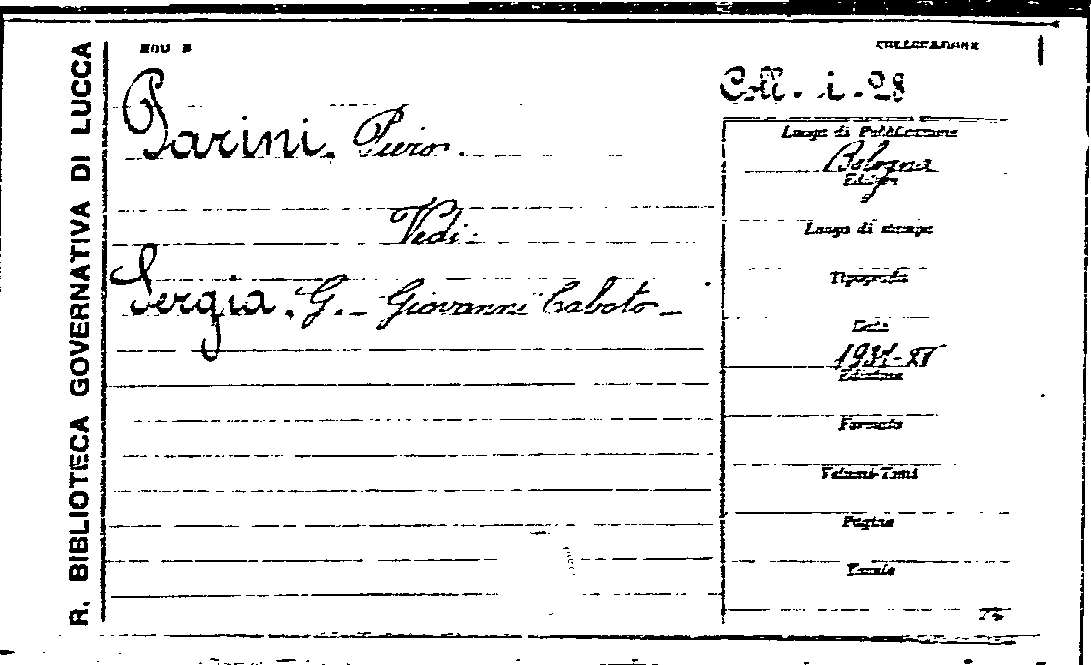 R. BIBLIOTECA GOVERNATIVA DI LUCCA
MOD
COLLOCAZIONE
Coll. i. 28
Parini. Piero.
Vedi:
Sergia. G. - Giovanni Caboto -
Luogo di Pubblicazione
Bologna
Editore
Luogo di stampa
Tipografia
Data
Edizione
Formato
Volumi-Tomi
Pagine
Tavole